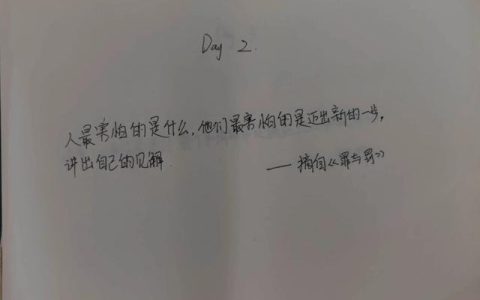 Day 2.
人最害怕的是什么,他们最害怕的是迈出新的一步,
讲出自己的见解.
——摘自《罪与罚》